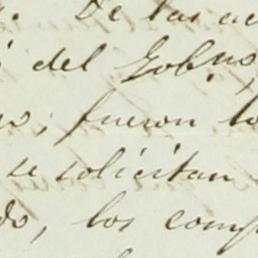 De las
del Gob.no,
fueron
se solicitan
do, los comp